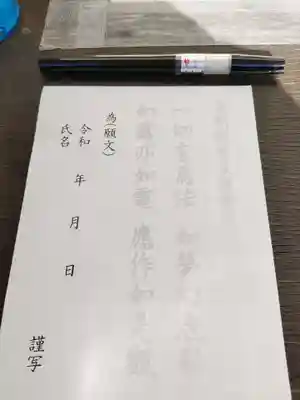 一切有為法 如夢幻泡影
如露亦如電 應作如是觀
為(願文)
令和 年 月 日
氏名 謹写